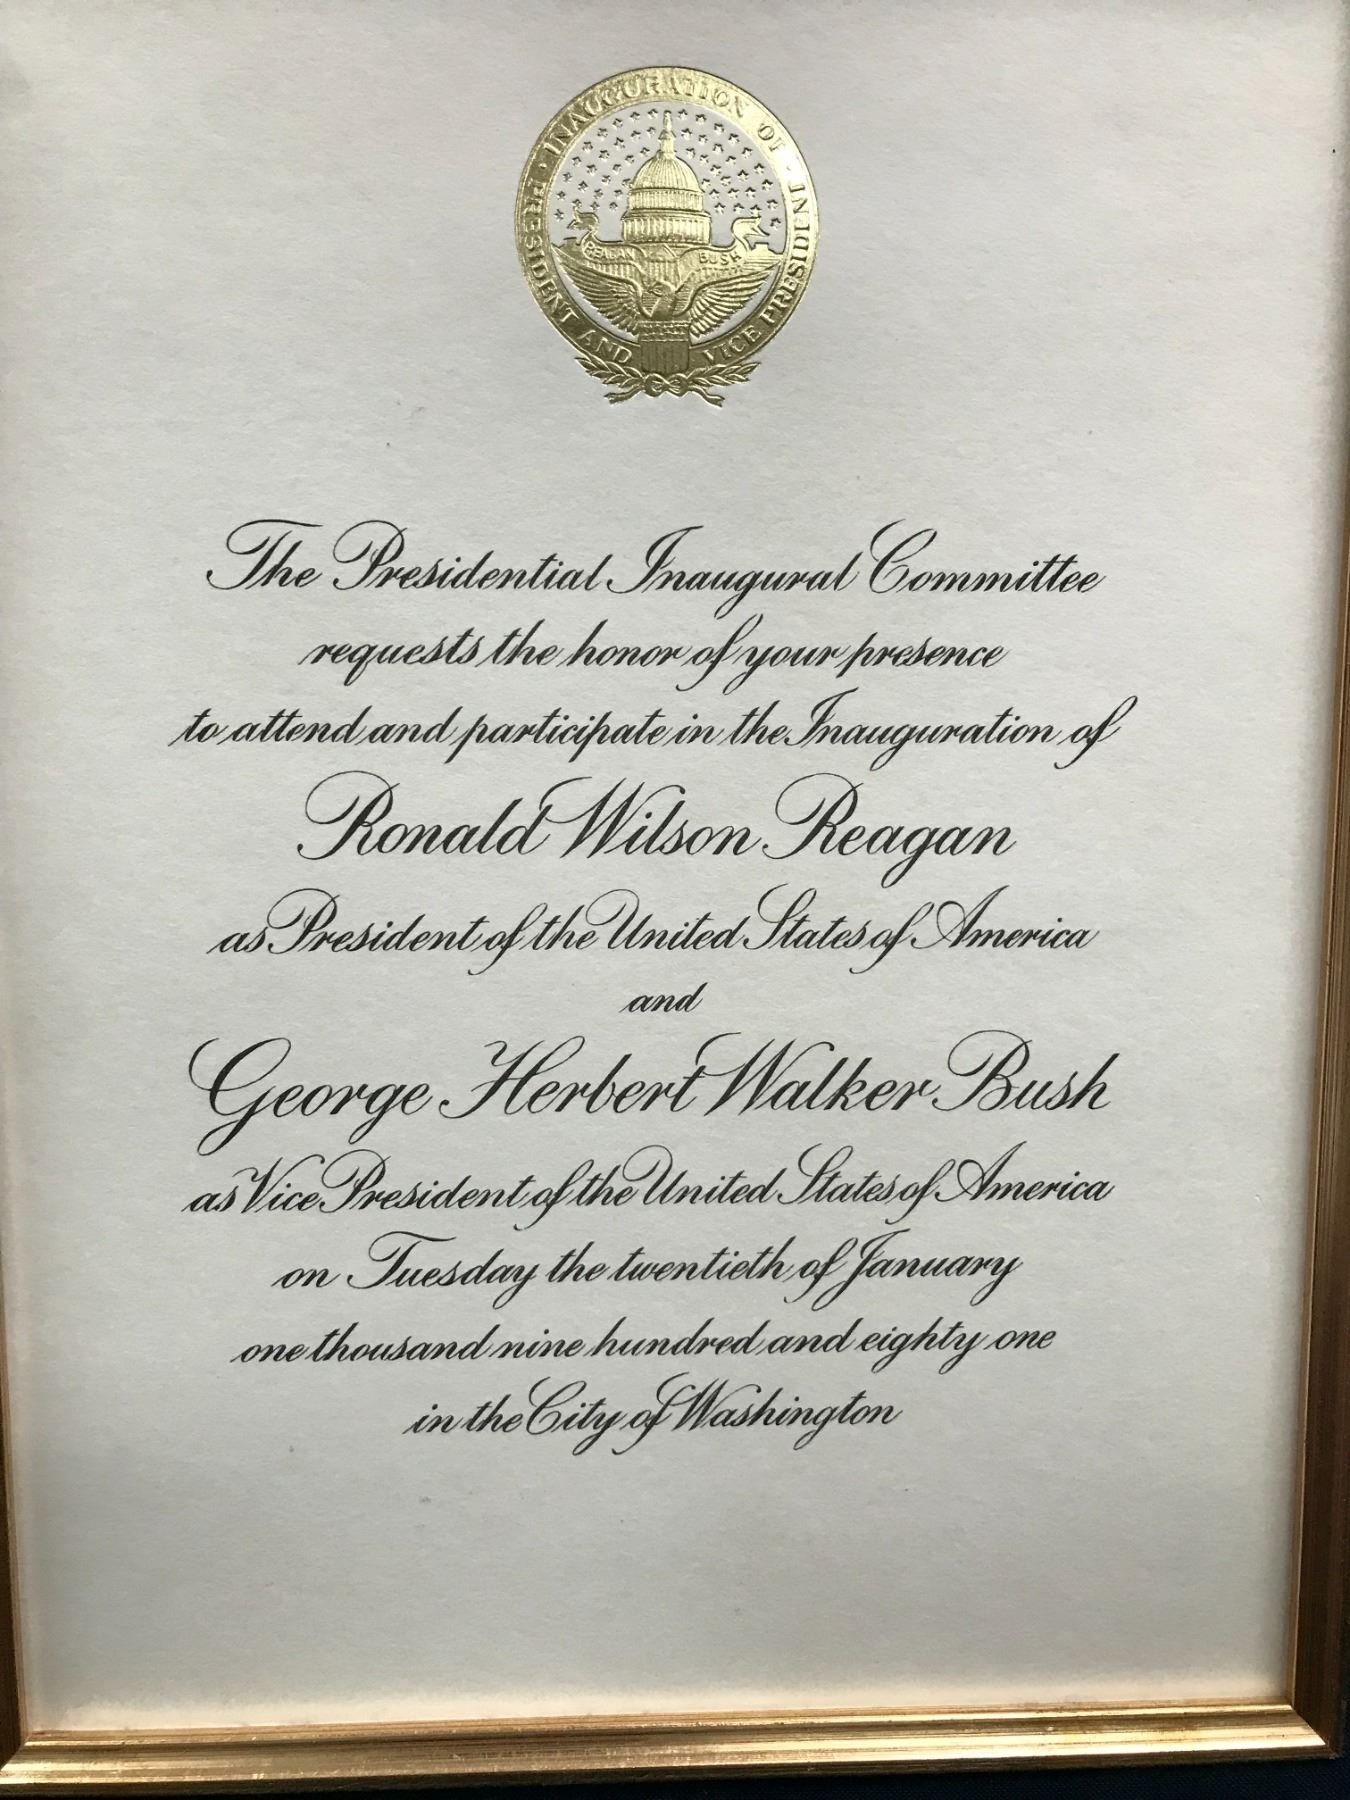 INAUGURATION OF
PRESIDENT AND VICE PRESIDENT
REAGAN BUSH
The Presidential Inaugural Committee
requests the honor of your presence
to attend and participate in the Inauguration of
Ronald Wilson Reagan
as President of the United States of America
and
George Herbert Walker Bush
as Vice President of the United States of America
on Tuesday the twentieth of January
one thousand nine hundred and eighty one
in the City of Washington